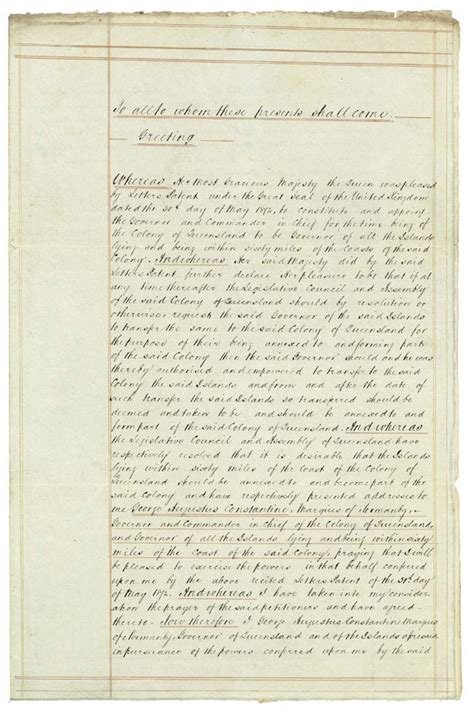 To all to whom these presents shall come
Greeting
Whereas Her Most Gracious Majesty the Queen was pleased
by Letters Patent under the Great Seal of the United Kingdom
dated the 30th day of May 1872, to constitute and appoint
the Governor and Commander in Chief for the time being of
the Colony of Queensland to be Governor of all the Islands
lying and being within sixty miles of the Coasts of the said
Colony. And whereas Her said Majesty did by the said
Letters Patent further declare Her pleasure to be that if at
any time thereafter the Legislative Council and Assembly
of the said Colony of Queensland should by resolution or
otherwise, request the said Governor of the said Islands
to transfer the same to the said Colony of Queensland for
the purpose of their being annexed to and forming part
of the said Colony then the said Governor should and he was
thereby authorised and empowered to transfer to the said
Colony the said Islands and from and after the date of
such transfer the said Islands so transferred should be
deemed and taken to be and should be annexed to and
form part of the said Colony of Queensland. And whereas
the Legislative Council and Assembly of Queensland have
respectively resolved that it is desirable that the Islands
lying within sixty miles of the Coast of the Colony of
Queensland should be annexed to and become part of the
said Colony and have respectively presented addresses to
me George Augustus Constantine, Marquis of Normanby,
Governor and Commander in Chief of the Colony of Queensland,
and Governor of all the Islands lying and being within sixty
miles of the Coast of the said Colony, praying that I will
be pleased to exercise the powers in that behalf conferred
upon me by the above recited Letters Patent of the 30th day
of May 1872. And whereas I have taken into my consider-
ation the prayer of the said petitioners and have agreed
thereto. Now therefore I George Augustus Constantine Marquis
of Normanby, Governor of Queensland and of the Islands aforesaid
in pursuance of the powers conferred upon me by the said